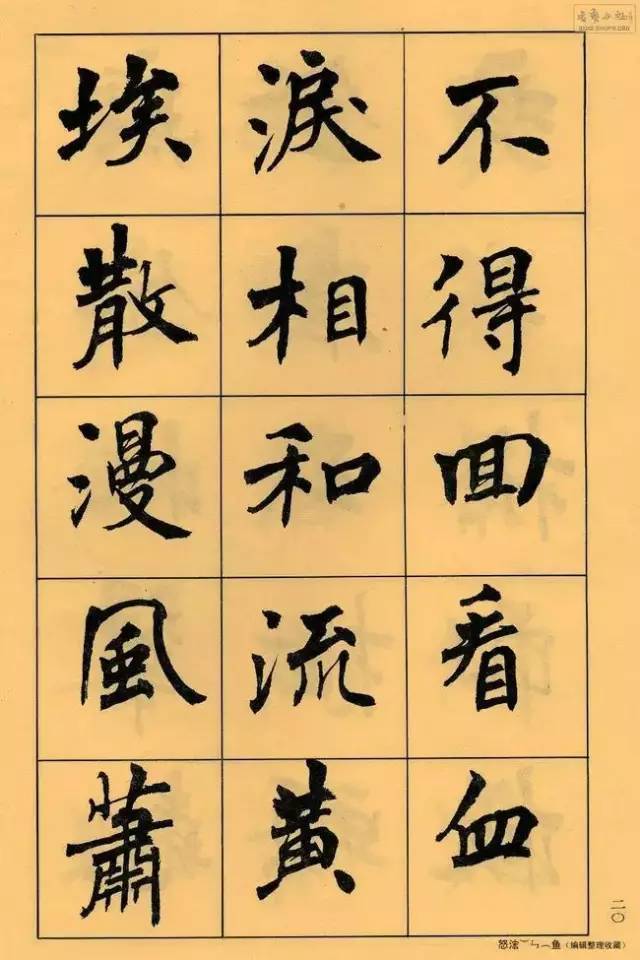 不得回看血
淚相和流黃
埃散漫風蕭
二〇
（编辑整理收藏）